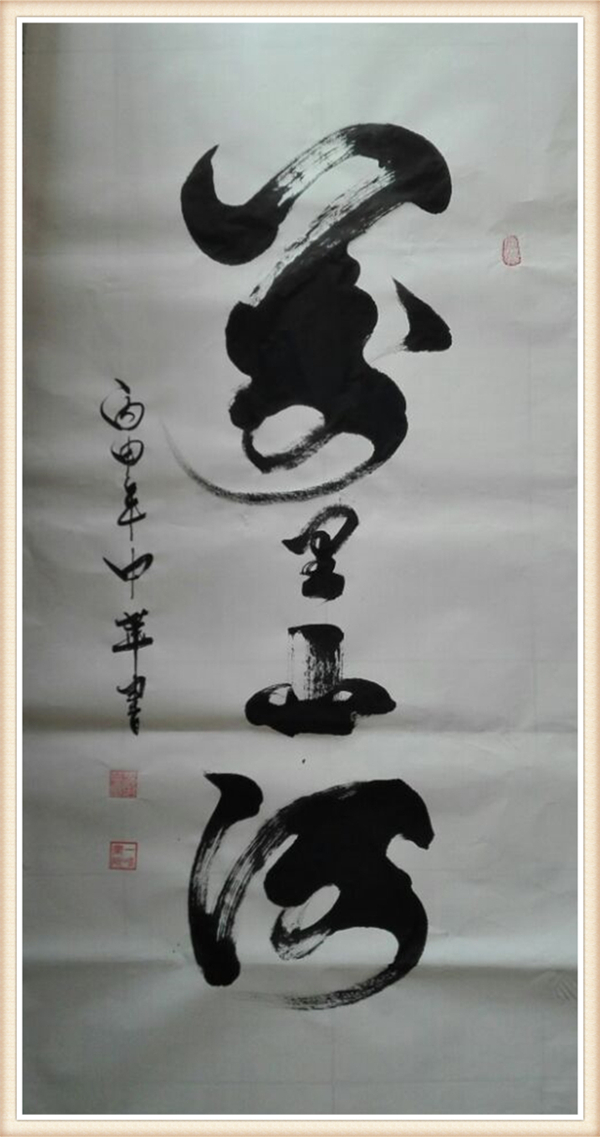 萬里山河
丙申年中華書